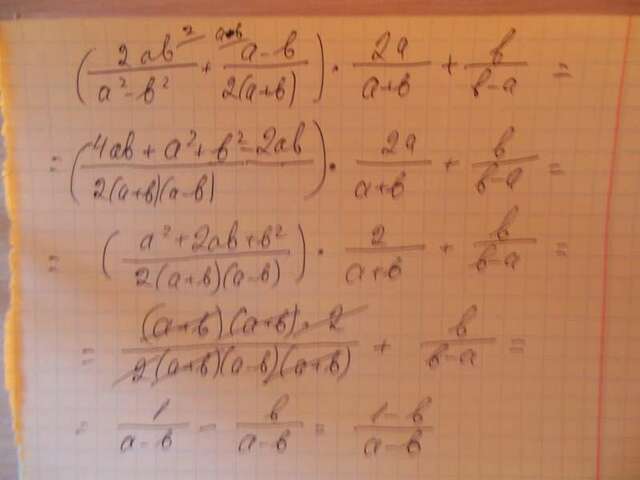 (2ab/(a²-b²) + (a-b)/(2(a+b))) · 2a/(a+b) + b/(b-a) =
= ((4ab + a² + b² - 2ab)/(2(a+b)(a-b))) · 2a/(a+b) + b/(b-a) =
= ((a² + 2ab + b²)/(2(a+b)(a-b))) · 2/(a+b) + b/(b-a) =
= ((a+b)(a+b) · 2)/(2(a+b)(a-b)(a+b)) + b/(b-a) =
= 1/(a-b) - b/(a-b) = (1-b)/(a-b)